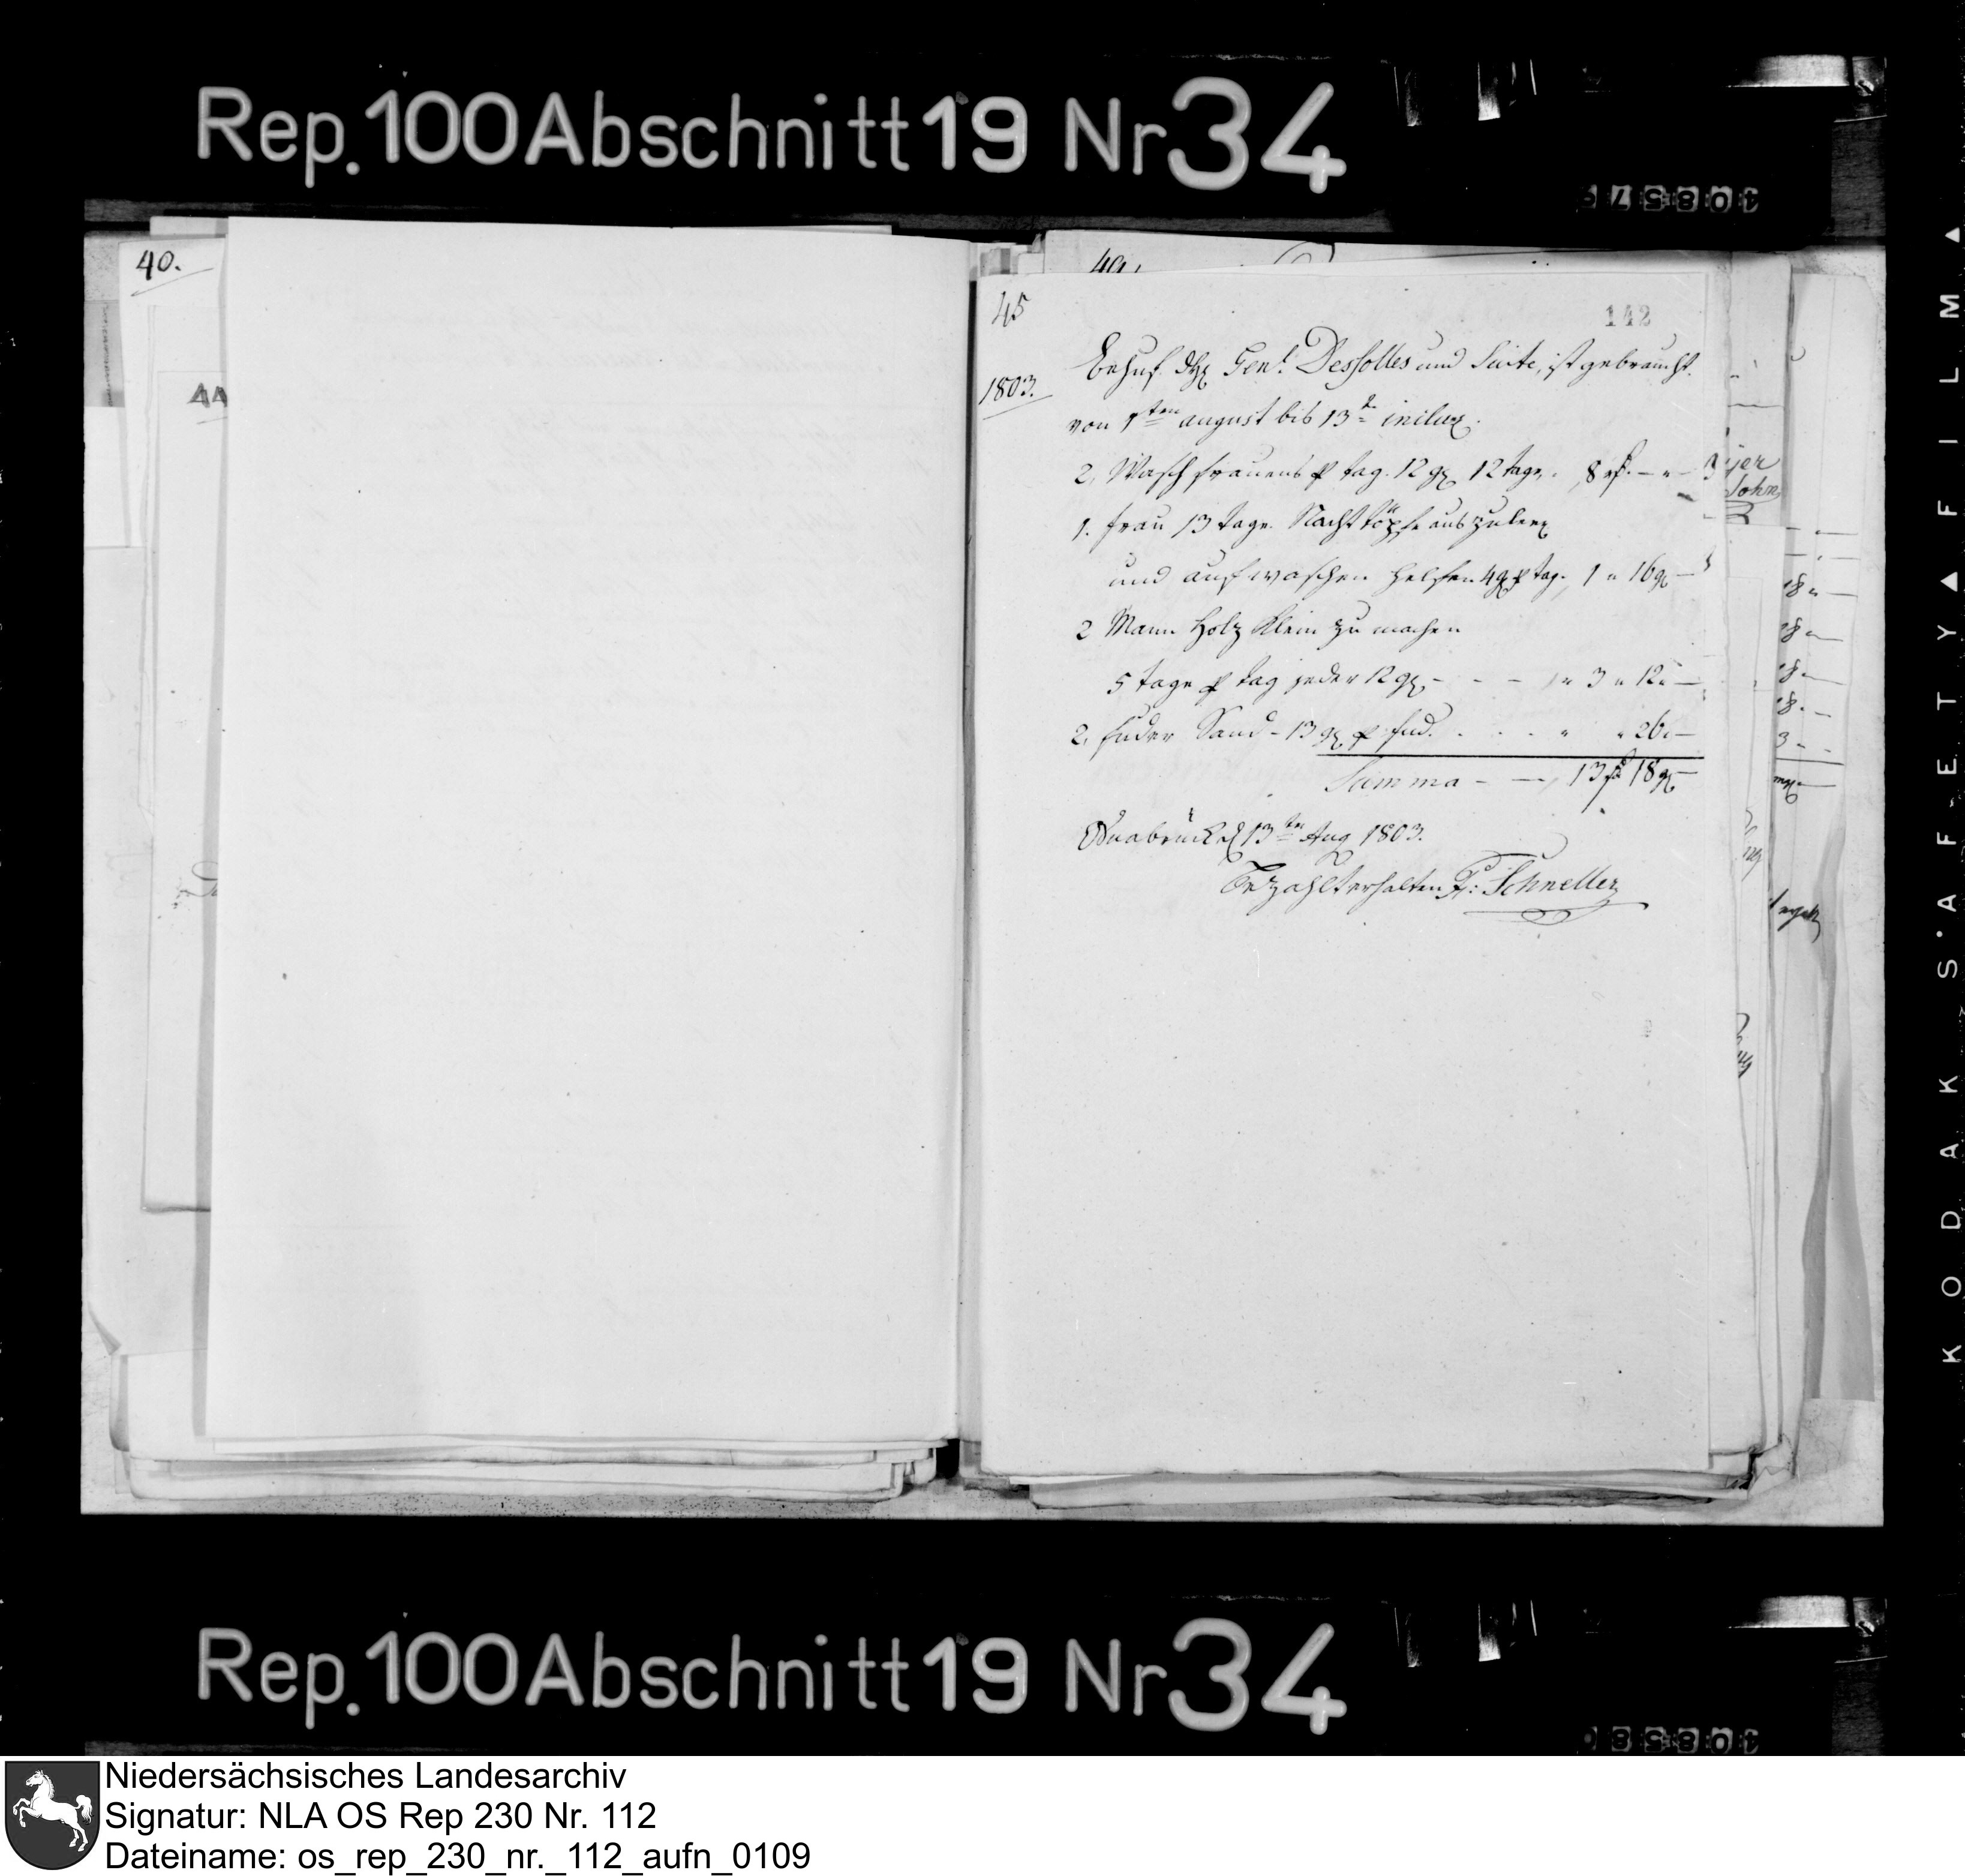 Rep. 100 Abschnitt 19 Nr 34
40.
44
45
142
1803.
Behuf des Genl. Dessolles und Suite, ist gebraucht.
von 1ten august bis 13t inclus.
2, Waschfrauens p tag. 12 gr 12 tage. 8 rt. — " —
1. frau 13 tage. Nachttöpfe auszuleren
und aufwaschen helfen 4 gr p tag. 1 " 16 gr —
2 Mann Holz klein zu machen
5 tage p tag jeder 12 gr, - - - - " 3 " 12 " —
2, fuder Sand - 13 gr p fud. . . . " " 26 " —
Summa - — 13 rt 18 gr —
Osnabrück d 13ten Aug 1803.
Bezahlt erhalten F: Schneller
Rep. 100 Abschnitt 19 Nr 34
KODAK SAFETY FILM
Niedersächsisches Landesarchiv
Signatur: NLA OS Rep 230 Nr. 112
Dateiname: os_rep_230_nr._112_aufn_0109